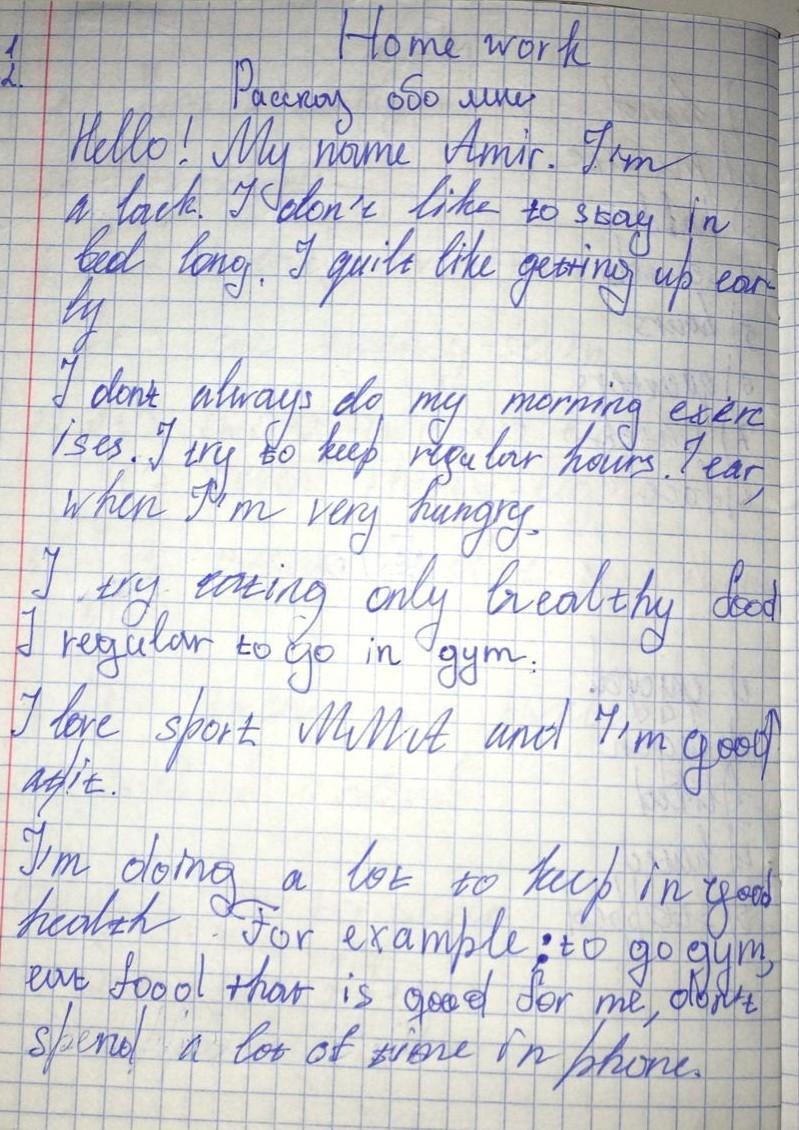 1
Home work
2.
Рассказ обо мне
Hello! My name Amir. I'm
a lack. I don't like to stay in
bed long. I quilt like getting up ear-
ly
I dont always do my morning exerc
ises. I try to keep regular hours. I eat,
when I'm very hungry.
I try eating only healthy food
I regular to go in gym.
I love sport MMA and I'm good
at it.
I'm doing a lot to keep in good
health. For example: to go gym,
eat food that is good for me, don't
spend a lot of time in phone.